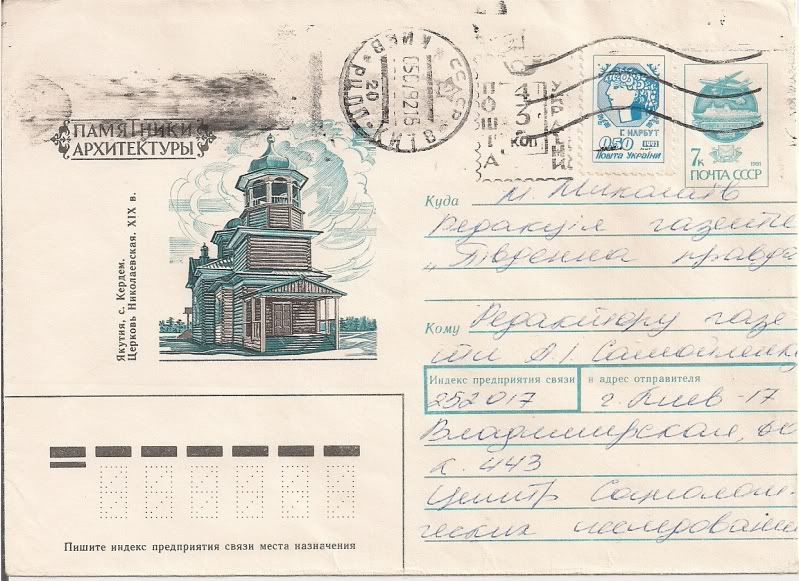 ПАМЯТНИКИ
АРХИТЕКТУРЫ
Якутия, с. Кердем.
Церковь Николаевская. XIX в.
КИЕВ
СССР
050592 16
20
ПОШТА
43
коп
УКРАЇНИ
Г. НАРБУТ
0.50 1992
ПОШТА УКРАЇНИ
7к 1991
ПОЧТА СССР
Куда м. Миколаїв
Редакція газети
„Південна правда
Кому Редактору газе
ти А.І. Самойленк
Индекс предприятия связи и адрес отправителя
252017 г. Киев-17
Владимирская, 60
к. 443
Центр Социологи-
ческих исследовани
Пишите индекс предприятия связи места назначения